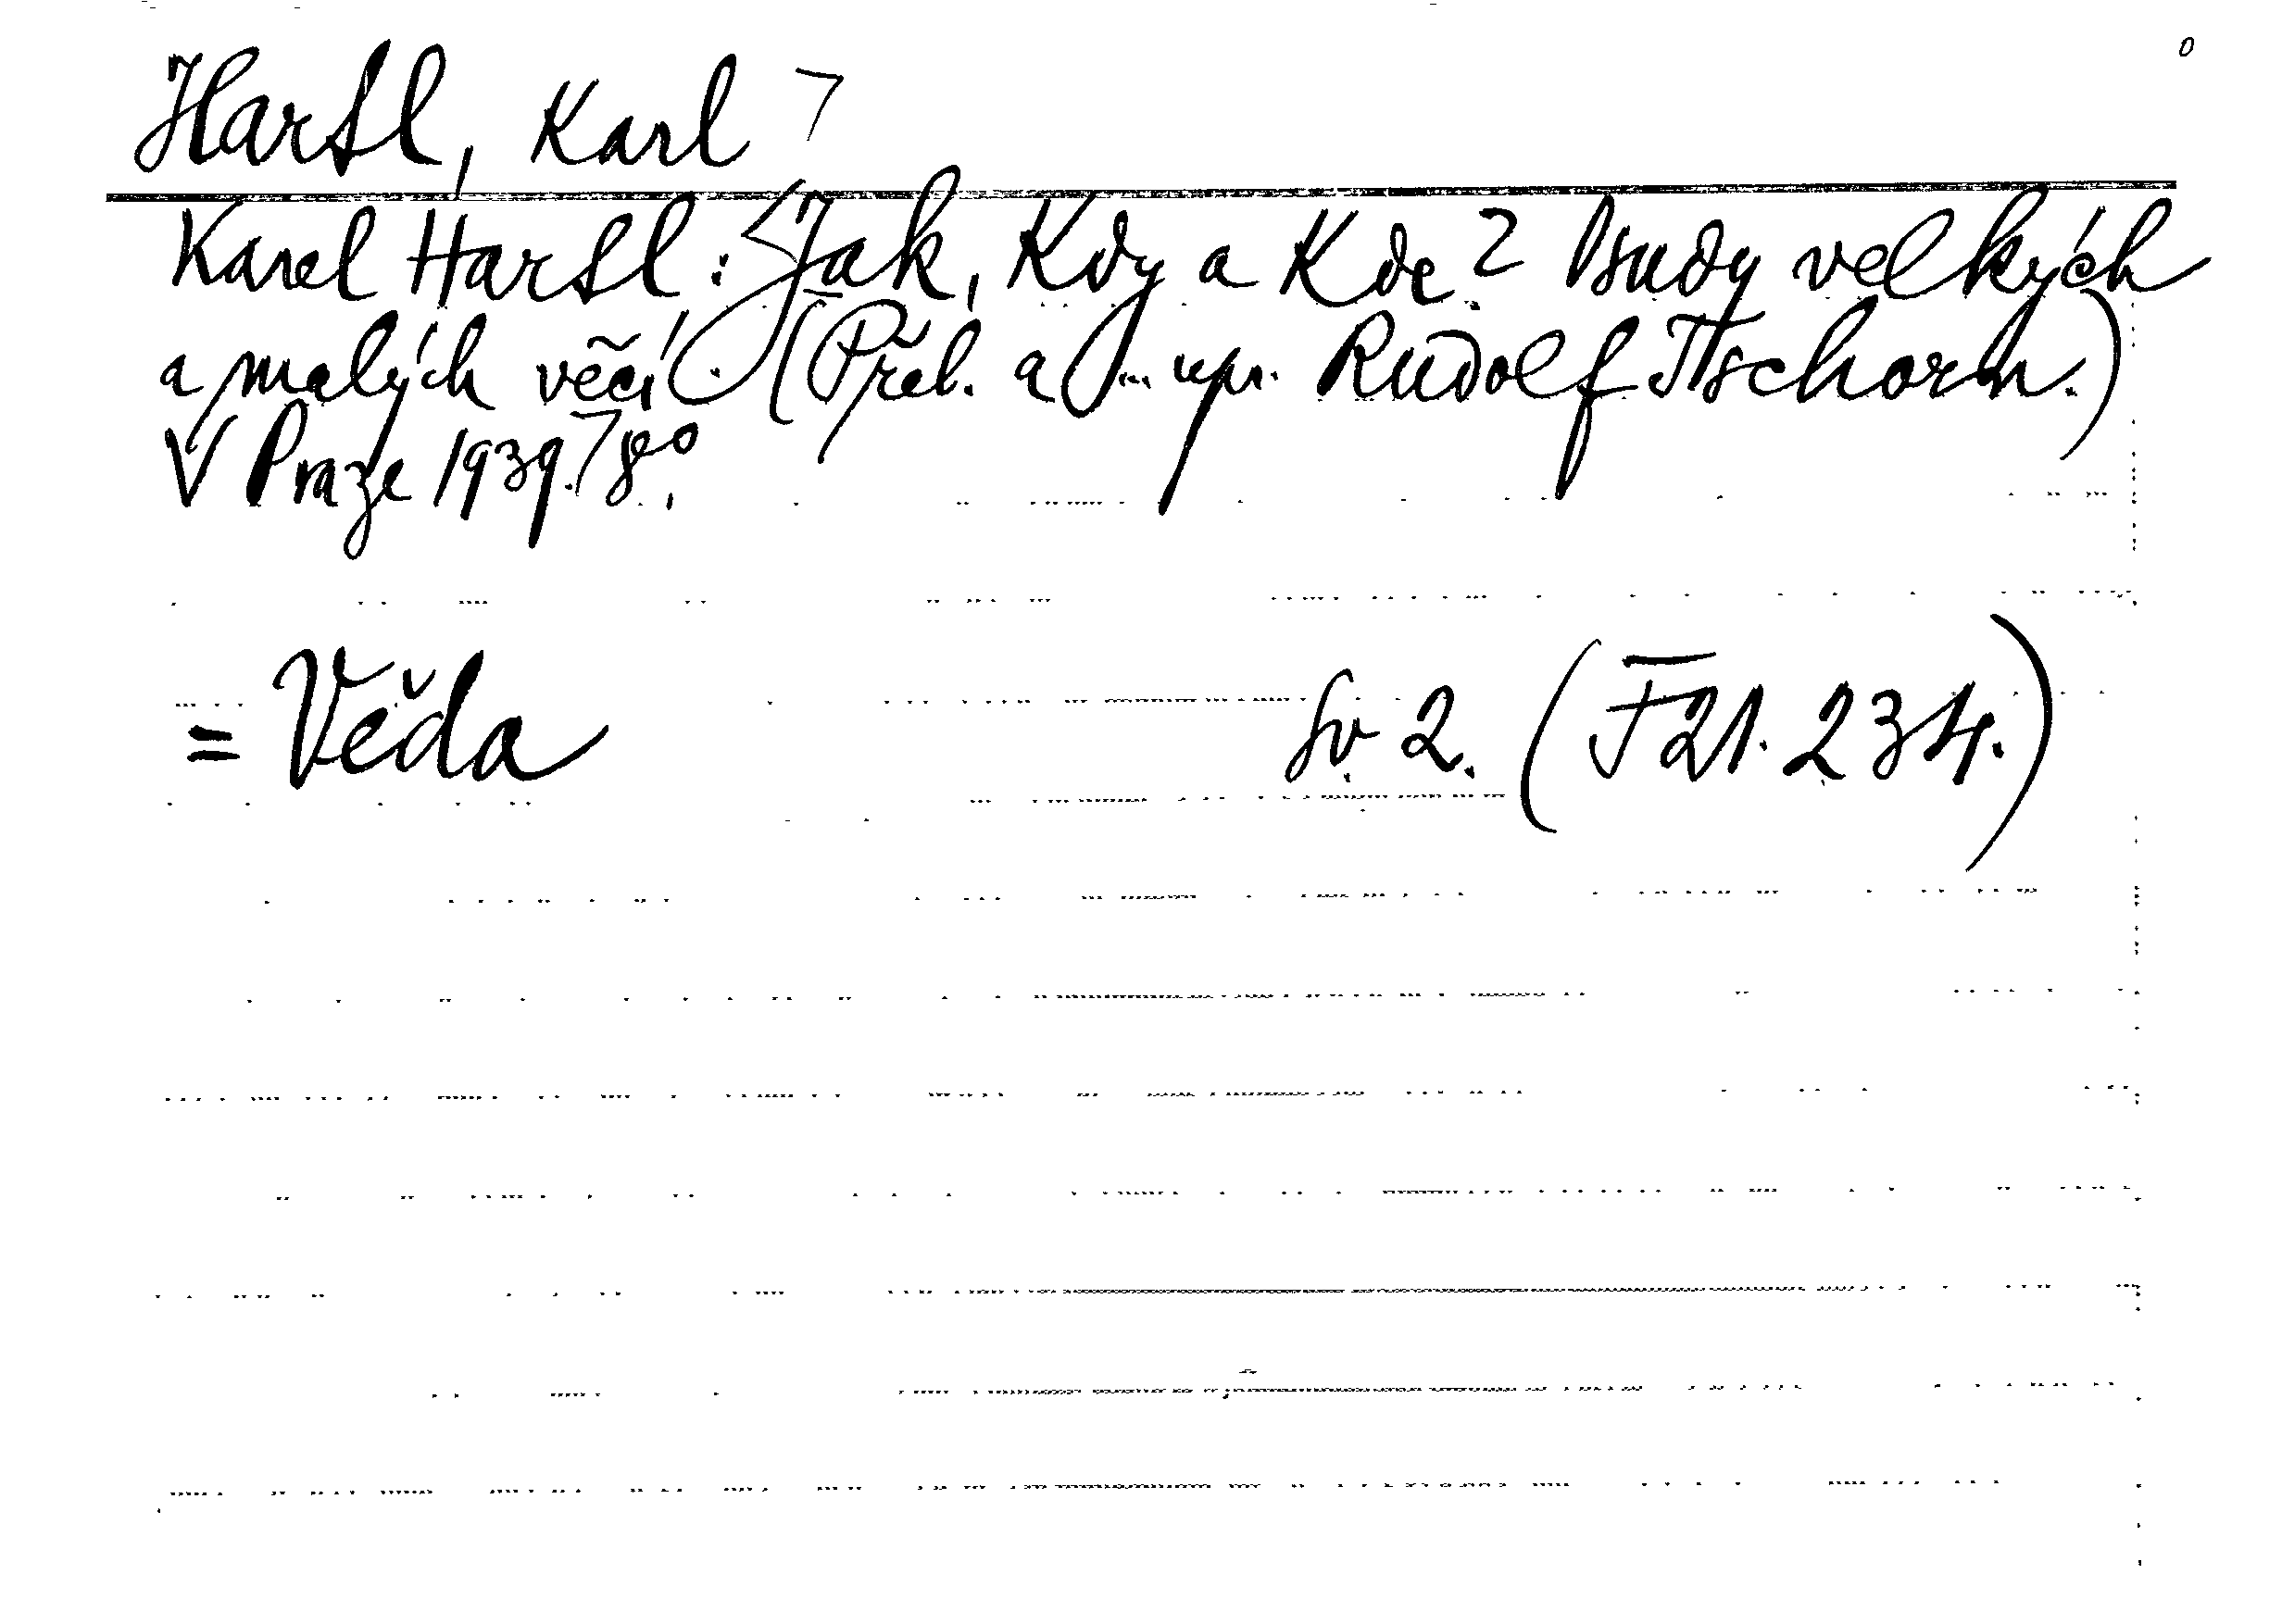 Hartl, Karl
Karel Hartl: Jak, Kdy a Kde? Osudy velkých
a malých věcí. (Přel. a ... upr. Rudolf Tschorn.)
V Praze 1939. 8°.
= Věda sv. 2. (F 21.234.)